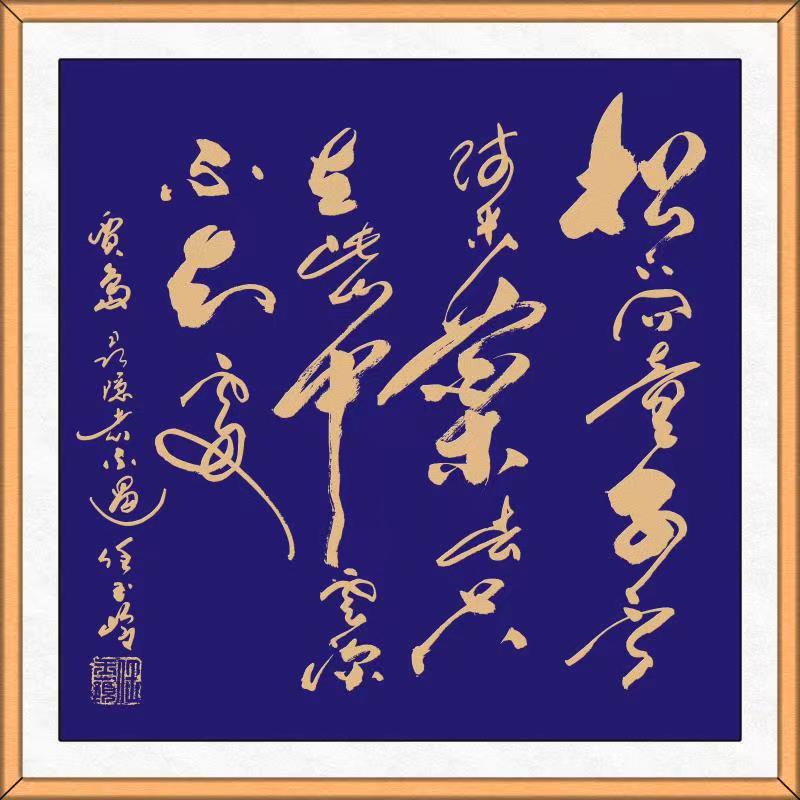 松下问童子言
师采藥去只
在此山中雲深
不知處
賈島 寻隐者不遇 任玉岭